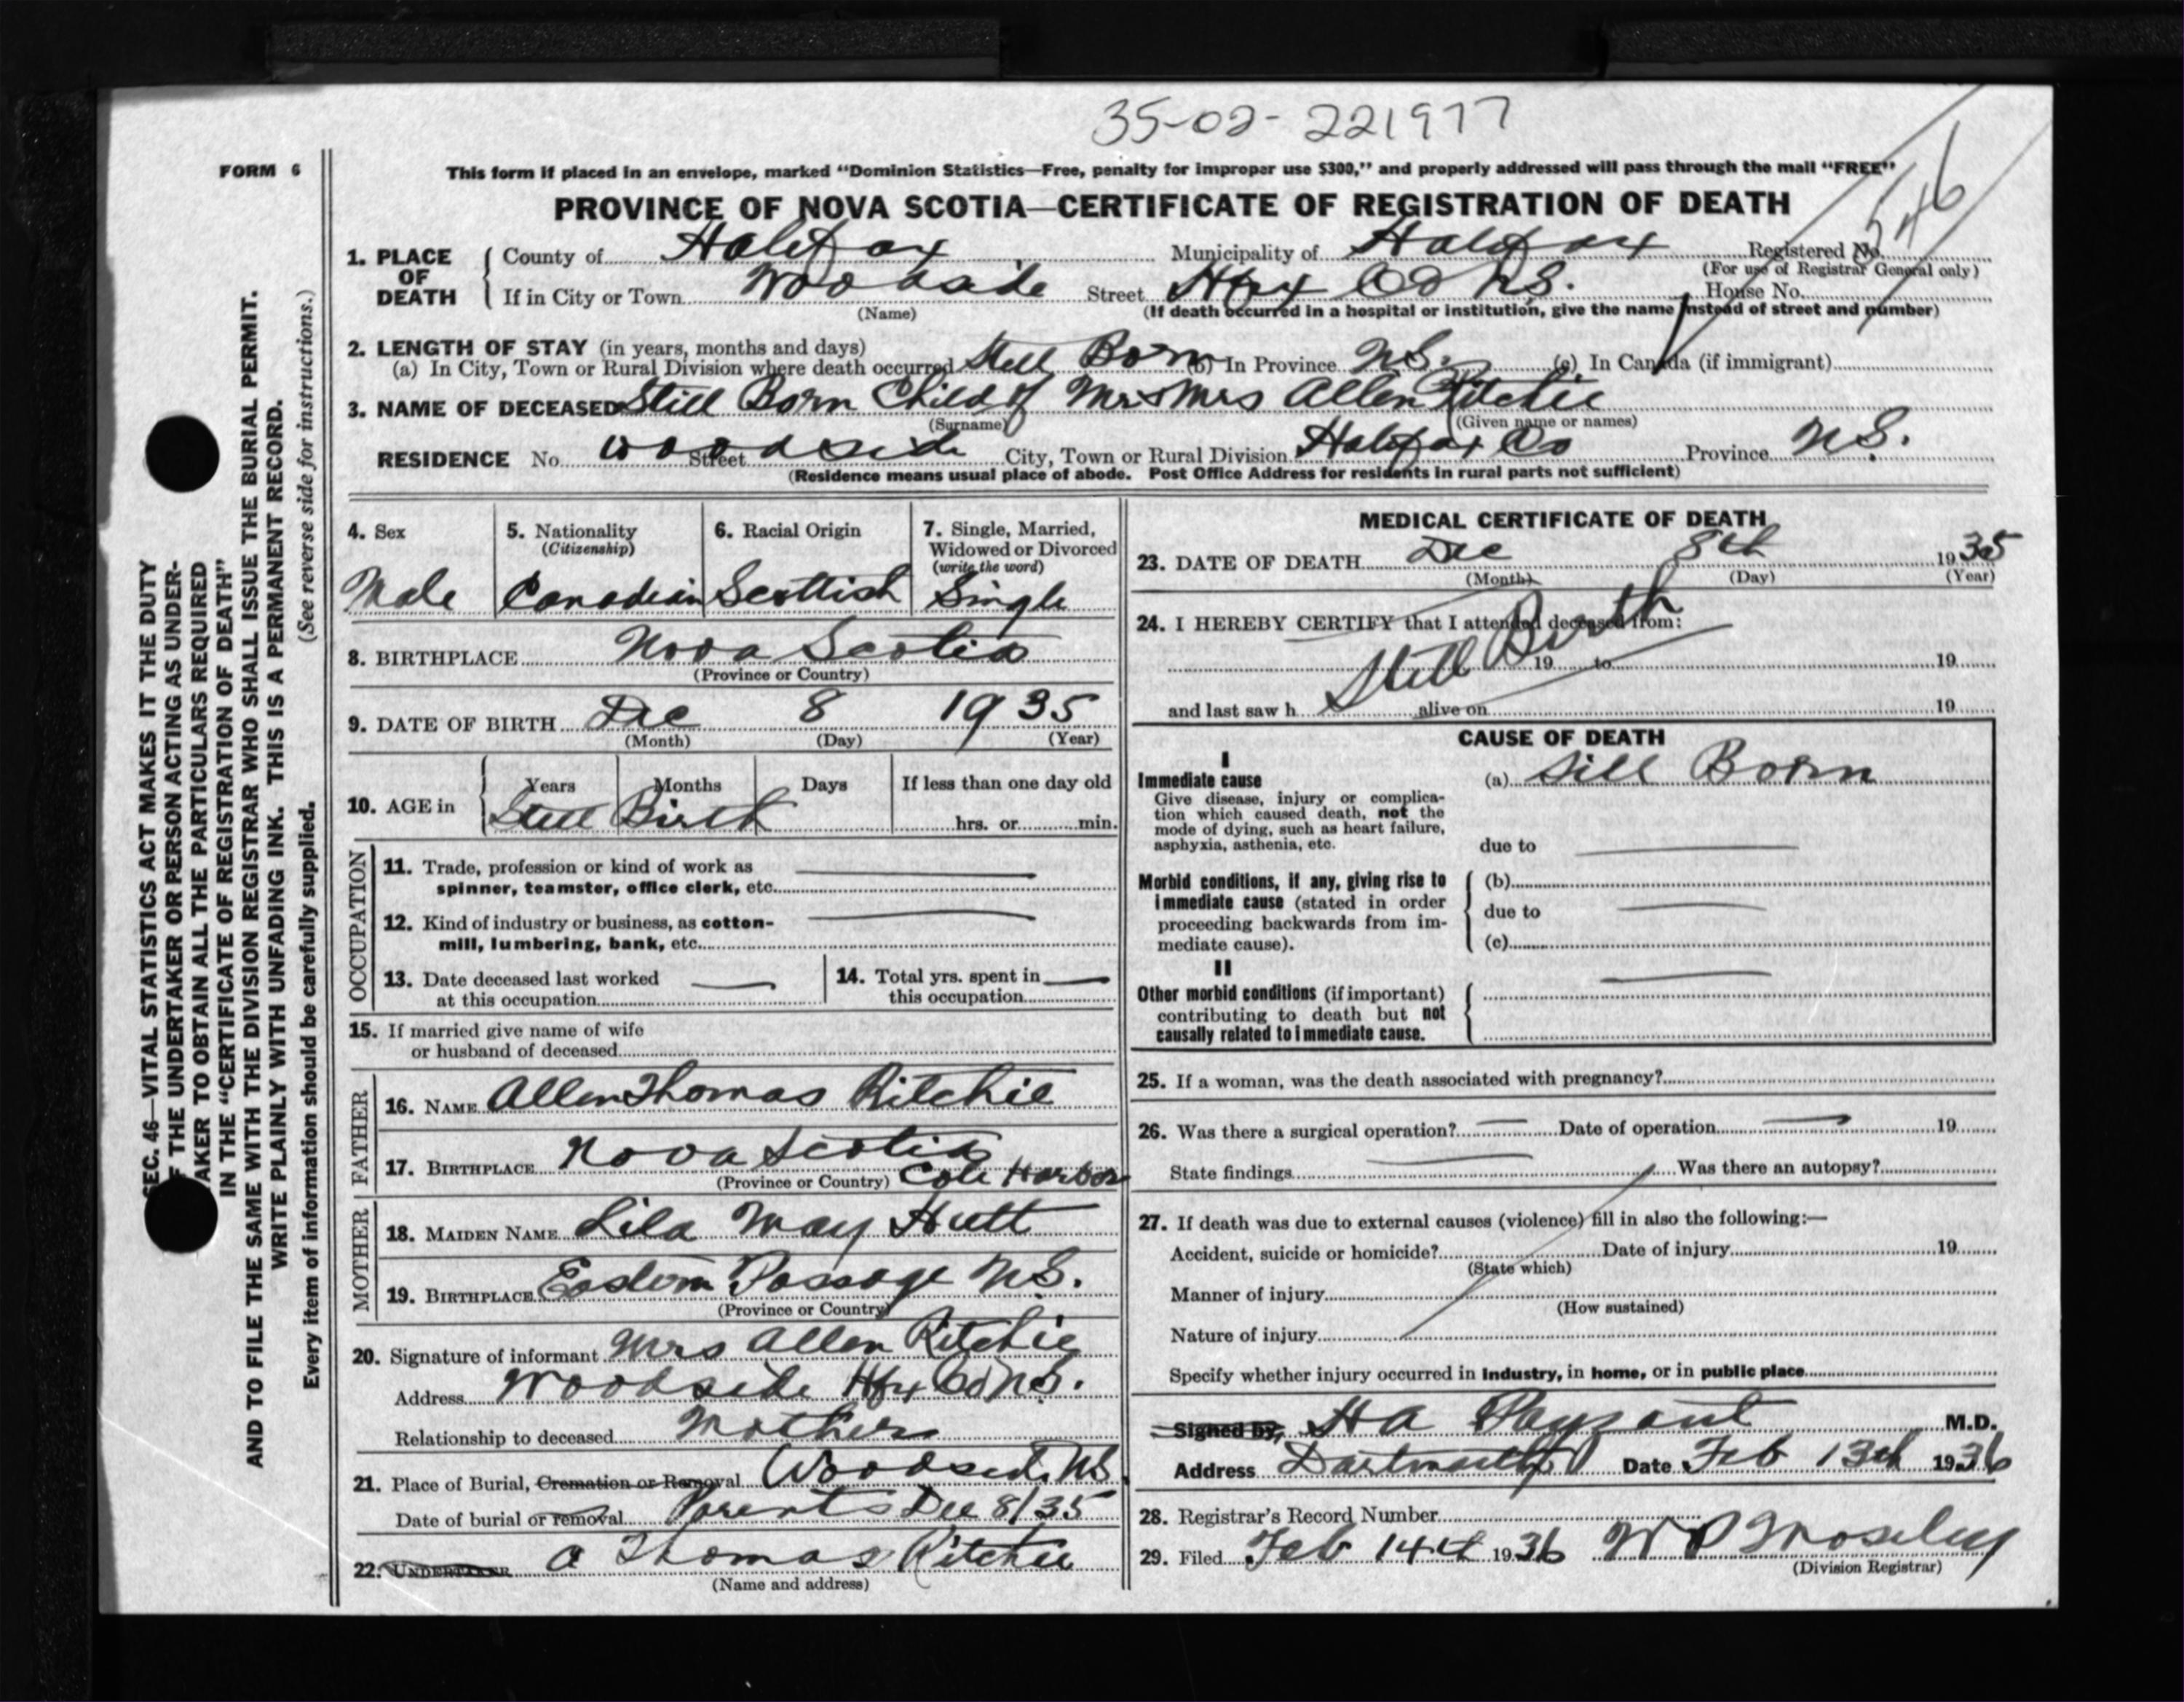 35-02-221977
FORM 6
This form if placed in an envelope, marked "Dominion Statistics—Free, penalty for improper use $300," and properly addressed will pass through the mail "FREE"
PROVINCE OF NOVA SCOTIA—CERTIFICATE OF REGISTRATION OF DEATH
1. PLACE OF DEATH County of Halifax Municipality of Halifax Registered No.
(For use of Registrar General only)
If in City or Town Woodside Street Hfx Co N.S. House No.
(Name) (If death occurred in a hospital or institution, give the name instead of street and number)
2. LENGTH OF STAY (in years, months and days)
(a) In City, Town or Rural Division where death occurred Still Born (b) In Province N.S. (c) In Canada (if immigrant)
3. NAME OF DECEASED Still Born Child of Mr & Mrs Allen Ritchie
(Surname) (Given name or names)
RESIDENCE No. Woodside Street City, Town or Rural Division Halifax Co Province N.S.
(Residence means usual place of abode. Post Office Address for residents in rural parts not sufficient)
4. Sex Male
5. Nationality (Citizenship) Canadian
6. Racial Origin Scottish
7. Single, Married, Widowed or Divorced (write the word) Single
8. BIRTHPLACE Nova Scotia
(Province or Country)
9. DATE OF BIRTH Dec 8 1935
(Month) (Day) (Year)
10. AGE in Years Months Days If less than one day old
Still Birth hrs. or min.
OCCUPATION
11. Trade, profession or kind of work as
spinner, teamster, office clerk, etc.
12. Kind of industry or business, as cotton-
mill, lumbering, bank, etc.
13. Date deceased last worked
at this occupation
14. Total yrs. spent in
this occupation
15. If married give name of wife
or husband of deceased
FATHER
16. NAME Allen Thomas Ritchie
17. BIRTHPLACE Nova Scotia
(Province or Country) Cole Harbor
MOTHER
18. MAIDEN NAME Lila May Hutt
19. BIRTHPLACE Eastern Passage N.S.
(Province or Country)
20. Signature of informant Mrs Allen Ritchie
Address Woodside Hfx Co N.S.
Relationship to deceased Mother
21. Place of Burial, Cremation or Removal Woodside N.S.
Date of burial or removal Parents Dec 8/35
22. UNDERTAKER A Thomas Ritchie
(Name and address)
MEDICAL CERTIFICATE OF DEATH
23. DATE OF DEATH Dec 8th 1935
(Month) (Day) (Year)
24. I HEREBY CERTIFY that I attended deceased from:
Still Birth 19 to 19
and last saw h alive on 19
CAUSE OF DEATH
I
Immediate cause (a) Sill Born
Give disease, injury or complica-
tion which caused death, not the
mode of dying, such as heart failure,
asphyxia, asthenia, etc. due to
Morbid conditions, if any, giving rise to (b)
immediate cause (stated in order due to
proceeding backwards from im-
mediate cause). (c)
II
Other morbid conditions (if important)
contributing to death but not
causally related to immediate cause.
25. If a woman, was the death associated with pregnancy?
26. Was there a surgical operation? Date of operation 19
State findings Was there an autopsy?
27. If death was due to external causes (violence) fill in also the following:—
Accident, suicide or homicide? Date of injury 19
(State which)
Manner of injury
(How sustained)
Nature of injury
Specify whether injury occurred in industry, in home, or in public place
Signed by, H A Payzant M.D.
Address Dartmouth Date Feb 13th 1936
28. Registrar's Record Number
29. Filed Feb 14th 1936 W Moseley
(Division Registrar)
SEC. 46—VITAL STATISTICS ACT MAKES IT THE DUTY
THE UNDERTAKER OR PERSON ACTING AS UNDER-
AKER TO OBTAIN ALL THE PARTICULARS REQUIRED
IN THE "CERTIFICATE OF REGISTRATION OF DEATH"
AND TO FILE THE SAME WITH THE DIVISION REGISTRAR WHO SHALL ISSUE THE BURIAL PERMIT.
WRITE PLAINLY WITH UNFADING INK. THIS IS A PERMANENT RECORD.
Every item of information should be carefully supplied. (See reverse side for instructions.)